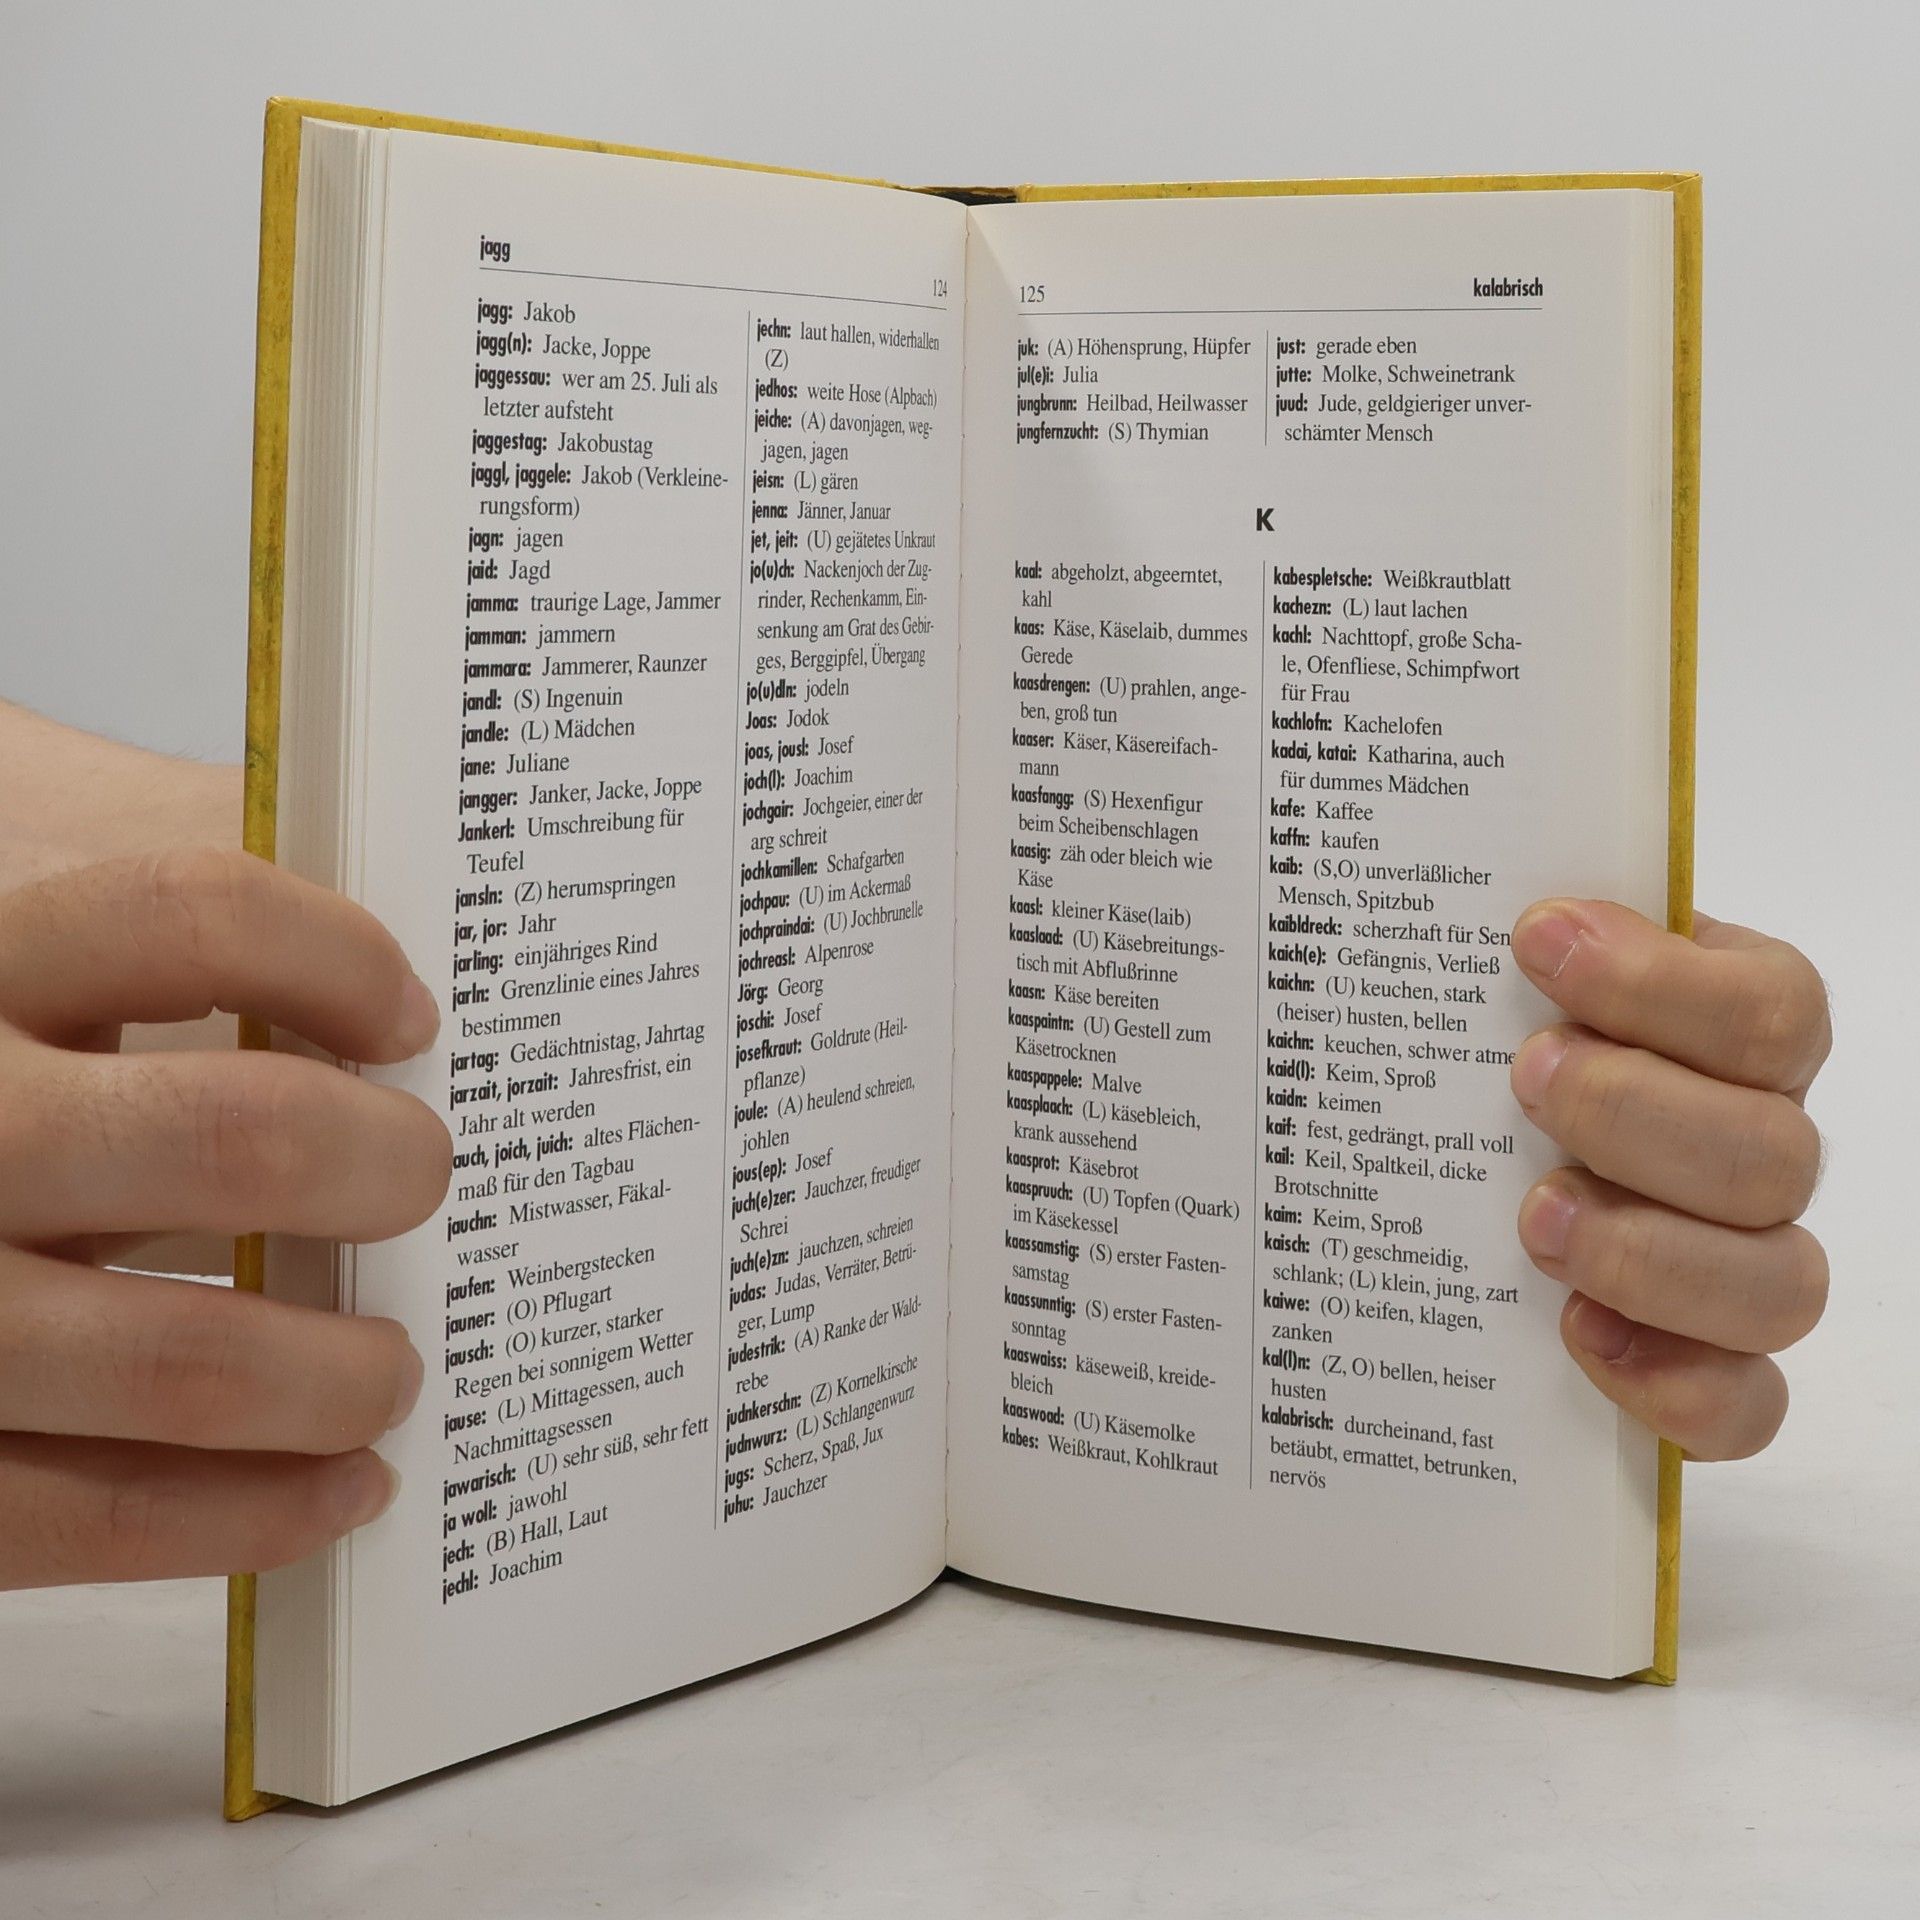 jagg
124
jagg: Jakob
jagg(n): Jacke, Joppe
jaggessau: wer am 25. Juli als
letzter aufsteht
jaggestag: Jakobustag
jaggl, jaggele: Jakob (Verkleine-
rungsform)
jagn: jagen
jaid: Jagd
jamma: traurige Lage, Jammer
jamman: jammern
jammara: Jammerer, Raunzer
jandl: (S) Ingenuin
jandle: (L) Mädchen
jane: Juliane
jangger: Janker, Jacke, Joppe
Jankerl: Umschreibung für
Teufel
jansln: (Z) herumspringen
jar, jor: Jahr
jarling: einjähriges Rind
jarln: Grenzlinie eines Jahres
bestimmen
jartag: Gedächtnistag, Jahrtag
jarzait, jorzait: Jahresfrist, ein
Jahr alt werden
auch, joich, juich: altes Flächen-
maß für den Tagbau
jauchn: Mistwasser, Fäkal-
wasser
jaufen: Weinbergstecken
jauner: (O) Pflugart
jausch: (O) kurzer, starker
Regen bei sonnigem Wetter
jause: (L) Mittagessen, auch
Nachmittagsessen
jawarisch: (U) sehr süß, sehr fett
ja woll: jawohl
jech: (B) Hall, Laut
jechl: Joachim
jechn: laut hallen, widerhallen
(Z)
jedhos: weite Hose (Alpbach)
jeiche: (A) davonjagen, weg-
jagen, jagen
jeisn: (L) gären
jenna: Jänner, Januar
jet, jeit: (U) gejätetes Unkraut
jo(u)ch: Nackenjoch der Zug-
rinder, Rechenkamm, Ein-
senkung am Grat des Gebir-
ges, Berggipfel, Übergang
jo(u)dln: jodeln
Joas: Jodok
joas, jousl: Josef
joch(l): Joachim
jochgair: Jochgeier, einer der
arg schreit
jochkamillen: Schafgarben
jochpau: (U) im Ackermaß
jochpraindai: (U) Jochbrunelle
jochreasl: Alpenrose
Jörg: Georg
joschi: Josef
josefkraut: Goldrute (Heil-
pflanze)
joule: (A) heulend schreien,
johlen
jous(ep): Josef
juch(e)zer: Jauchzer, freudiger
Schrei
juch(e)zn: jauchzen, schreien
judas: Judas, Verräter, Betrü-
ger, Lump
judestrik: (A) Ranke der Wald-
rebe
judnkerschn: (Z) Kornelkirsche
judnwurz: (L) Schlangenwurz
jugs: Scherz, Spaß, Jux
juhu: Jauchzer
125
kalabrisch
juk: (A) Höhensprung, Hüpfer
jul(e)i: Julia
jungbrunn: Heilbad, Heilwasser
jungfernzucht: (S) Thymian
just: gerade eben
jutte: Molke, Schweinetrank
juud: Jude, geldgieriger unver-
schämter Mensch
K
kaal: abgeholzt, abgeerntet,
kahl
kaas: Käse, Käselaib, dummes
Gerede
kaasdrengen: (U) prahlen, ange-
ben, groß tun
kaaser: Käser, Käsereifach-
mann
kaasfangg: (S) Hexenfigur
beim Scheibenschlagen
kaasig: zäh oder bleich wie
Käse
kaasl: kleiner Käse(laib)
kaaslaad: (U) Käsebreitungs-
tisch mit Abflußrinne
kaasn: Käse bereiten
kaaspaintn: (U) Gestell zum
Käsetrocknen
kaaspappele: Malve
kaasplaach: (L) käsebleich,
krank aussehend
kaasprot: Käsebrot
kaaspruuch: (U) Topfen (Quark)
im Käsekessel
kaassamstig: (S) erster Fasten-
samstag
kaassunntig: (S) erster Fasten-
sonntag
kaaswaiss: käseweiß, kreide-
bleich
kaaswoad: (U) Käsemolke
kabes: Weißkraut, Kohlkraut
kabespletsche: Weißkrautblatt
kachezn: (L) laut lachen
kachl: Nachttopf, große Scha-
le, Ofenfliese, Schimpfwort
für Frau
kachlofn: Kachelofen
kadai, katai: Katharina, auch
für dummes Mädchen
kafe: Kaffee
kaffn: kaufen
kaib: (S,O) unverläßlicher
Mensch, Spitzbub
kaibldreck: scherzhaft für Sen
kaich(e): Gefängnis, Verließ
kaichn: (U) keuchen, stark
(heiser) husten, bellen
kaichn: keuchen, schwer atme
kaid(l): Keim, Sproß
kaidn: keimen
kaif: fest, gedrängt, prall voll
kail: Keil, Spaltkeil, dicke
Brotschnitte
kaim: Keim, Sproß
kaisch: (T) geschmeidig,
schlank; (L) klein, jung, zart
kaiwe: (O) keifen, klagen,
zanken
kal(l)n: (Z, O) bellen, heiser
husten
kalabrisch: durcheinand, fast
betäubt, ermattet, betrunken,
nervös